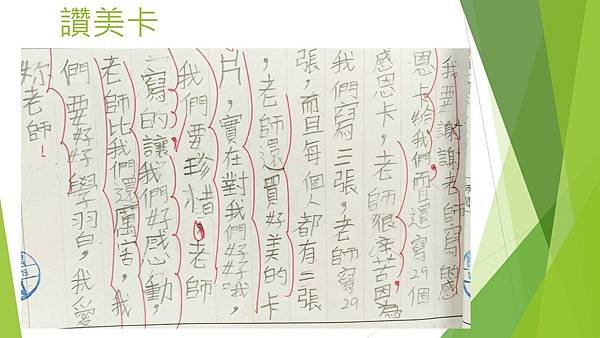 讚美卡
我要謝謝老師寫的感
恩卡給我們,而且還寫29個
感恩卡,老師很辛苦因為
我們寫三張,老師寫29
張,而且每個人都有三張
,老師還買好美的卡
片,實在對我們好好哦,
我們要珍惜,老師
寫的讓我們好感動,
老師比我們還厲害,我
們要好好學習,我愛
妳老師!